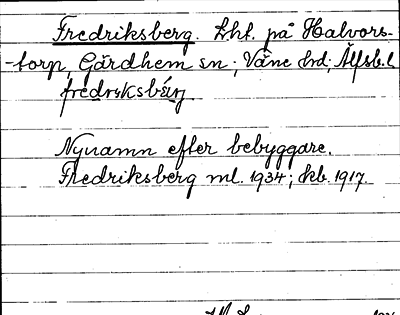 Fredriksberg. Lht. på Halvors-
-torp, Gärdhem sn; Väne hd; Älfsb. l
fredrɩksbärj
Nynamn efter bebyggare.
Fredriksberg ml. 1934; kb. 1917.